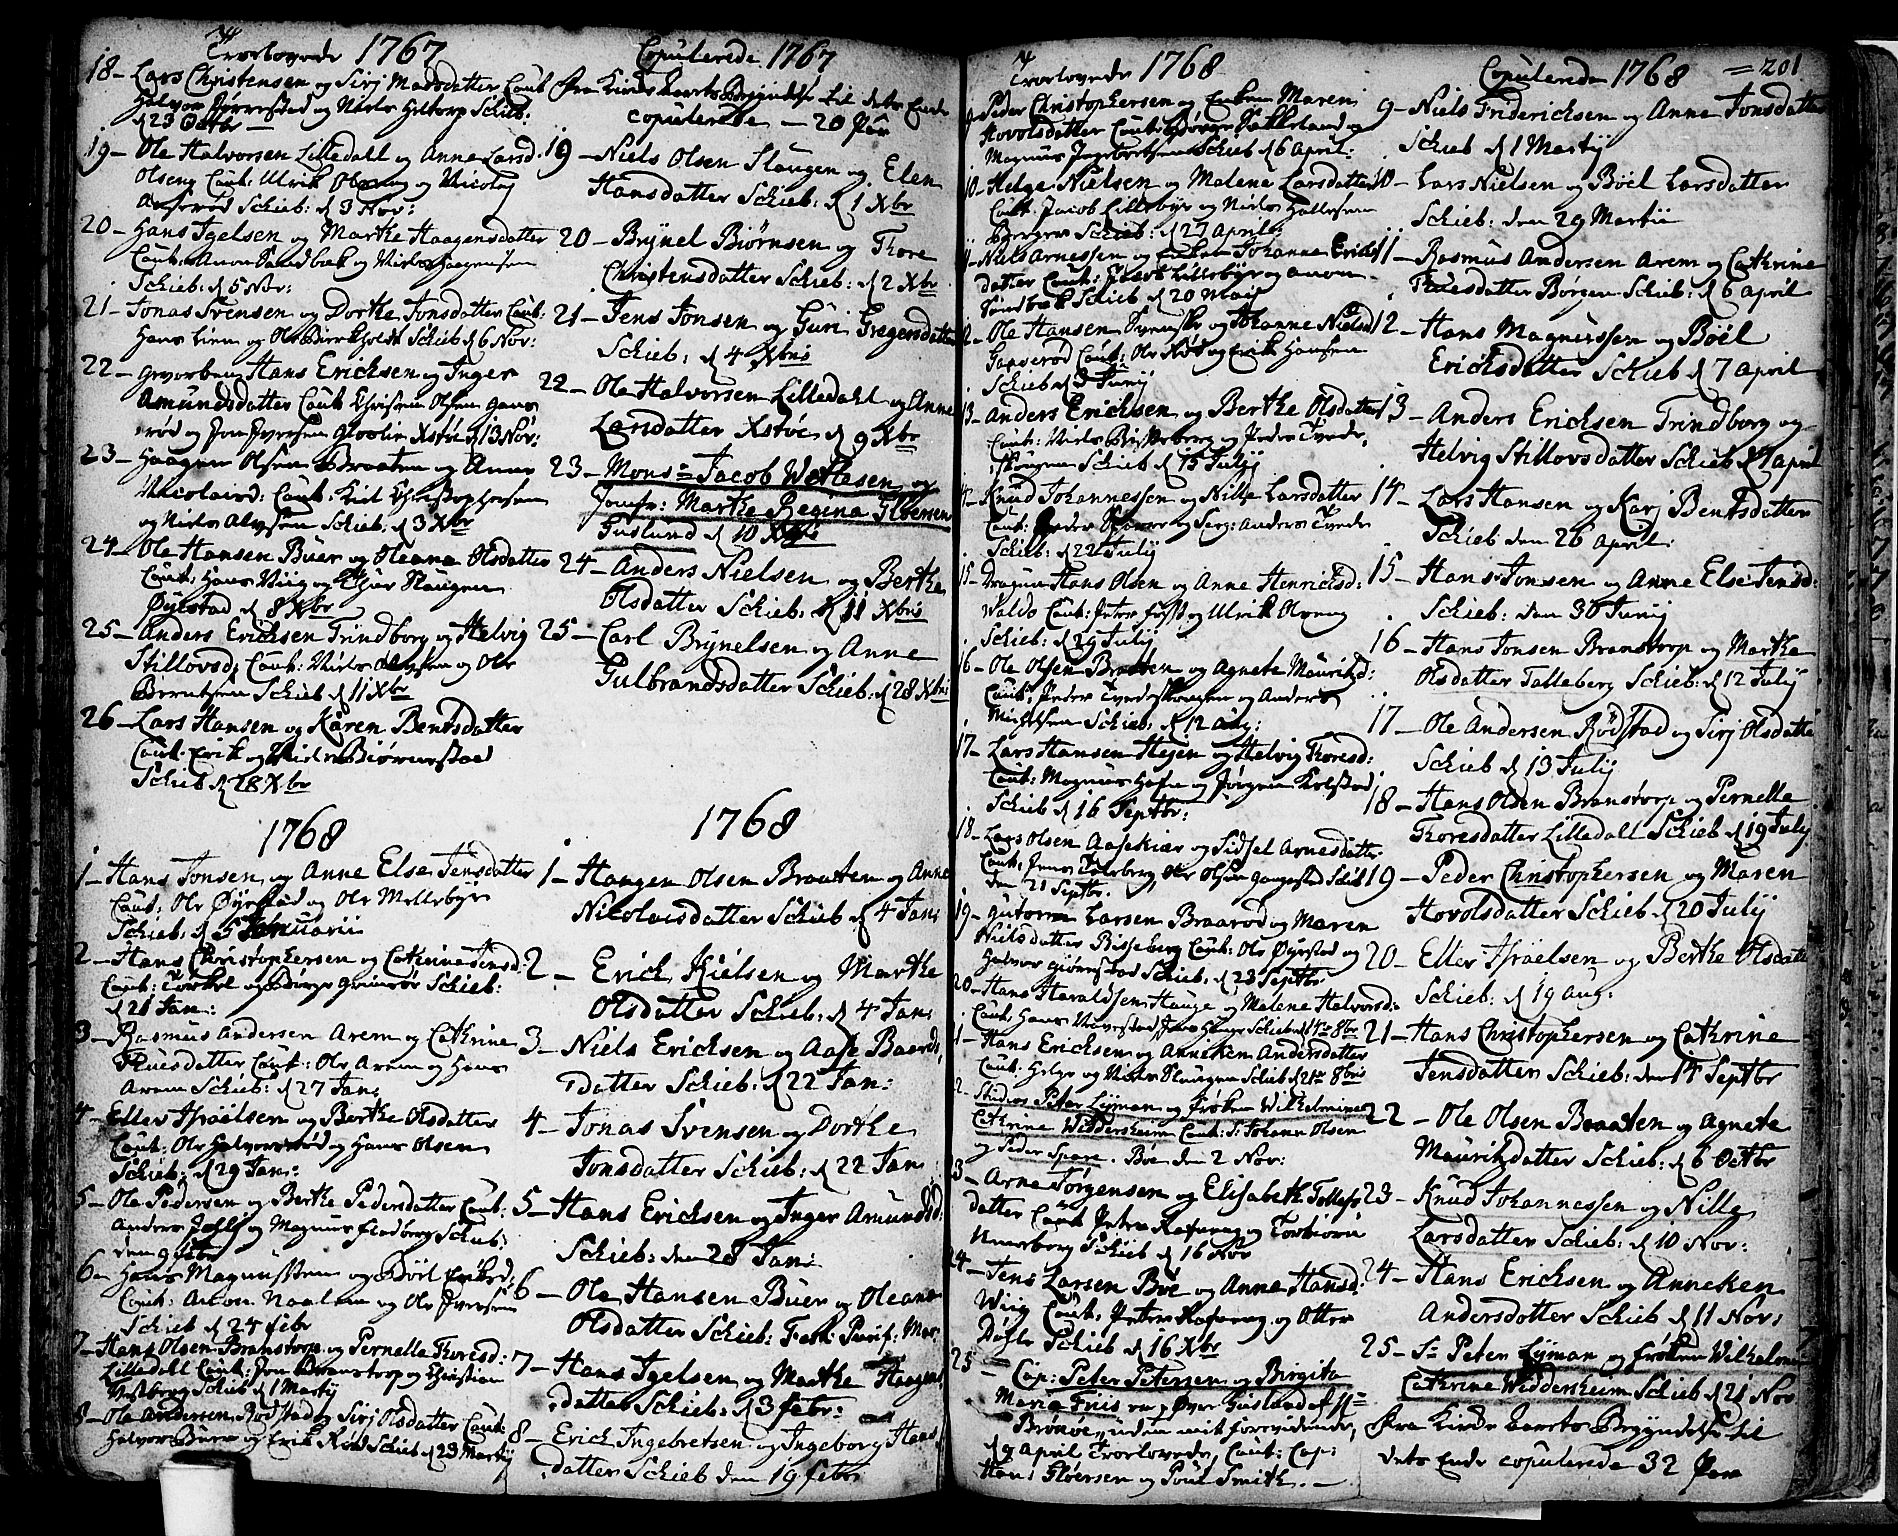 Trorlovede 1767
18 - Lars Christensen og Sirj Madsdatter Caut:
Halvor og Niels Heltorp Schieb:
d 23 Octbr
19 - Ole Halvorsen Lilledall og Anne Larsd:
Olseng Caut: Ulrik og Nicolaj
Schieb: d 3 Nov:
20 - Hans Igelsen og Marthe Haagensdatter
Caut: Amon Sandbæk og Niels Haagensen
Schieb: d 5 Nov:
21 - Jonas Svensen og Dorthe Jonsdatter Caut:
Hans Liem og Ole Schieb d 6 Nov:
22 - Hans Ericksen og Inger
Amundsdatter Caut Christen Olsen
rød og Jon Iversen d 13 Nov:
23 - Haagen Olsen Braaten og Anne
Nicolaisd: Caut: Kiel Christophersen
og Niels Schieb: d 3 Xbr
24 - Ole Hansen Buer og Oleana Olsdatter
Caut: Hans Wiig og Slaugen
Øyestad d 8 Xbr
25 - Anders Ericksen Trindborg og Helvig
Stillovsd: Caut: Niels og Ole
Berntsen Schieb d 11 Xbr
26 - Lars Hansen og Karen Bentsdatter
Caut: Erik og
Schieb d 28 Xbr
1768
1 - Hans Jonsen og Anne Else Jensdatter
Caut: Ole Øyestad og Ole Mellebye
Schieb: d 5 Januarii
2 - Hans Christophersen og Cathrine Jensd:
Caut: Torkel og Børge Grimsør Schieb:
d 21 Jan:
3 - Rasmus Andersen Arem og Cathrine
Truesdatter Caut: Ole Arem og Hans
Arem Schieb: d 27 Jan:
4 - Eller Israelsen og Berthe Olsdatter
Caut: Ole Halvorsrød og Hans Olsen
Schieb: d 29 Jan:
5 - Ole Pedersen og Berthe Pedersdatter Caut:
Anders og Magnus Schieb:
den 9 febr
6 - Hans Magnussen og Böel Ericksd:
Caut: Amon Naalem og Ole Iversen
Schieb d 24 febr
7 - Hans Olsen Branstorp og Pernelle Thoresd:
Lilledall Caut: Jon Branstorp og Christian
Westberg Schieb d 1 Martij
8 - Ole Andersen Rødstad og Sirj Olsdatter Caut:
Halvor Buer og Erik Rød Schieb: d 23 Martij
Copulerede 1767
Fra Kirke Aarets Begyndelse til dets Ende
copulerede - 20 Par
19 - Niels Olsen Slaugen og Elen
Hansdatter Schieb: d 1 Xbr
20 - Brynel Biørnsen og Thore
Christensdatter Schieb: d 2 Xbr
21 - Jens Jonsen og Guri Gregersdatter
Schieb: d 4 Xbris
22 - Ole Halvorsen Lilledahl og Anne
Larsdatter Xstøe d 9 Xbr
23 - Mons= Jacob Wettesen og
Jomfr: Marthe Regina Gløersen
Guslund d 10 Xbris
24 - Anders Nielsen og Berthe
Olsdatter Schieb: d 11 Xbris
25 - Carl Brynelsen og Anne
Gulbrandsdatter Schieb: d 28 Xbris
1768
1 - Haagen Olsen Braaten og Anne
Nicolaisdatter Schieb d 4 Jan:
2 - Erick Kielsen og Marthe
Olsdatter Schieb: d 4 Jan:
3 - Niels Ericksen og Aase Baards
datter Schieb: d 22 Jan:
4 - Jonas Svensen og Dorthe
Jonsdatter Schieb: d 22 Jan:
5 - Hans Ericksen og Inger Amundsd:
Schieb: den 28 Jan:
6 - Ole Hansen Buer og Oleana
Olsdatter Schieb: Festi: Purif: Mar:
7 - Hans Igelsen og Marthe Haagens
datter Schieb: d 3 febr:
8 - Erick Ingebretsen og Ingeborg Hans
datter Schieb den 19 febr
Trorlovede 1768
9 - Peder Christophersen og Enken Maren
Hovolsdatter Caut: og
Magnus Ingebretsen Schieb d 6 April:
10 - Helge Nielsen og Malene Larsdatter
Caut: Jacob Lillebye og Niels
Schieb: d 27 April:
11 - Niels Arnessen og Enken Johanne Ericks
datter Caut: Jacob Lillebye og Amon
Sandbæk Schieb d 20 Maij
12 - Ole Hansen Svenske og Johanne Nielsd:
Caut: Ole Nød og Erik Hansen
Schieb d 3 Junij
13 - Anders Ericksen og Berthe Olsdatter
Caut: Niels Bisseberg og Peder Tvede,
skougen Schieb d 15 Julij
14 - Knud Johannessen og Nille Larsdatter
Caut: Peder og Serg: Anders Tvede
Schieb: d 22 Julij
15 - Dragun Hans Olsen og Anne Henricksd:
Caut: Peter og Ulrik
Schieb: d 29 Julij
16 - Ole Olsen Braaten og Agnete Mauritzd:
Caut: Peder Tvedeskougen og Anders
Michelsen Schieb: d 12 Aug:
17 - Lars Hansen Hejen og Helvig Thoresd:
Caut: Magnus Hafn og Jørgen Kolstad
Schieb d 16 Septbr:
18 - Lars Olsen Aasekiær og Sidsel Arnesdatter
Caut: Jens Ole Olsen Schieb
den 21 Septbr.
19 - Gutorm Larsen Braarød og Maren
Nielsdatter Bisseberg Caut: Ole Øyestad og
Halvor Schieb: d 23 Septbr
20 - Hans Haraldsen Hauge og Malene Halvorsd:
Caut: Hans Jens Hauge Schieb d 14 8br
21 - Hans Ericksen og Anniken Andersdatter
Caut: Helge og Niels Slaugen Schieb d 21 8bris
22 - Studios Peter Lyman og frøken Wilhelmine
Cathrine Widdersheim Caut: Sr Johann Olsen
og Peder Spare. Böe den 2 Nov:
23 - Arne Jørgensen og Elisabeth Tollefs
datter Caut Peter og Torbiørn
Schieb d 16 Nov
24 - Jens Larsen Böe og Anne Hansd:
Wiig Caut: Peter og Otter
Schieb d 16 Xbr
25 - Cap: Peter Petersen og Birgita
Maria Friis
uden mit forevidende,
d 9 April Trorlovede, Caut: Cap:
Hans Gløersen og Poul Smith.
Copulerede 1768 = 201
9 - Niels Friderichsen og Anne Jonsdatter
Schieb d 1 Martij
10 - Lars Nielsen og Böel Larsdatter
Schieb: den 29 Martii
11 - Rasmus Andersen Arem og Cathrine
Truesdatter Borgen Schieb: d 6 April
12 - Hans Magnussen og Böel
Ericksdatter Schieb d 7 April
13 - Anders Ericksen Trindborg og
Helvig Stillovsdatter Schieb d 7 April
14 - Lars Hansen og Karj Bentsdatter
Schieb den 26 April.
15 - Hans Jonsen og Anne Else Jensd:
Schieb: den 30 Junij
16 - Hans Jonsen Branstorp og Marthe
Olsdatter Talleberg Schieb: d 12 Julij
17 - Ole Andersen Rødstad og Sirj Olsdatter
Schieb d 13 Julij
18 - Hans Olsen Branstorp og Pernelle
Thoresdatter Lilledall Schieb d 19 Julij
19 - Peder Christophersen og Maren
Hovolsdatter Schieb: d 20 Julij
20 - Eller Israelsen og Berthe Olsdatter
Schieb: d 19 Aug:
21 - Hans Christophersen og Cathrine
Jensdatter Schieb: den 14 Septbr
22 - Ole Olsen Braaten og Agnete
Mauritzdatter Schieb: d 6 Octbr
23 - Knud Johannessen og Nille
Larsdatter Schieb: d 10 Nov:
24 - Hans Ericksen og Anneken
Andersdatter Schieb d 11 Nov:
25 - Sr Peter Lyman og frøken Wilhelmine
Cathrine Widdersheim Schieb d 21 Nov
Fra Kirke Aarets Begyndelse til
dets Ende copulerede 32 Par